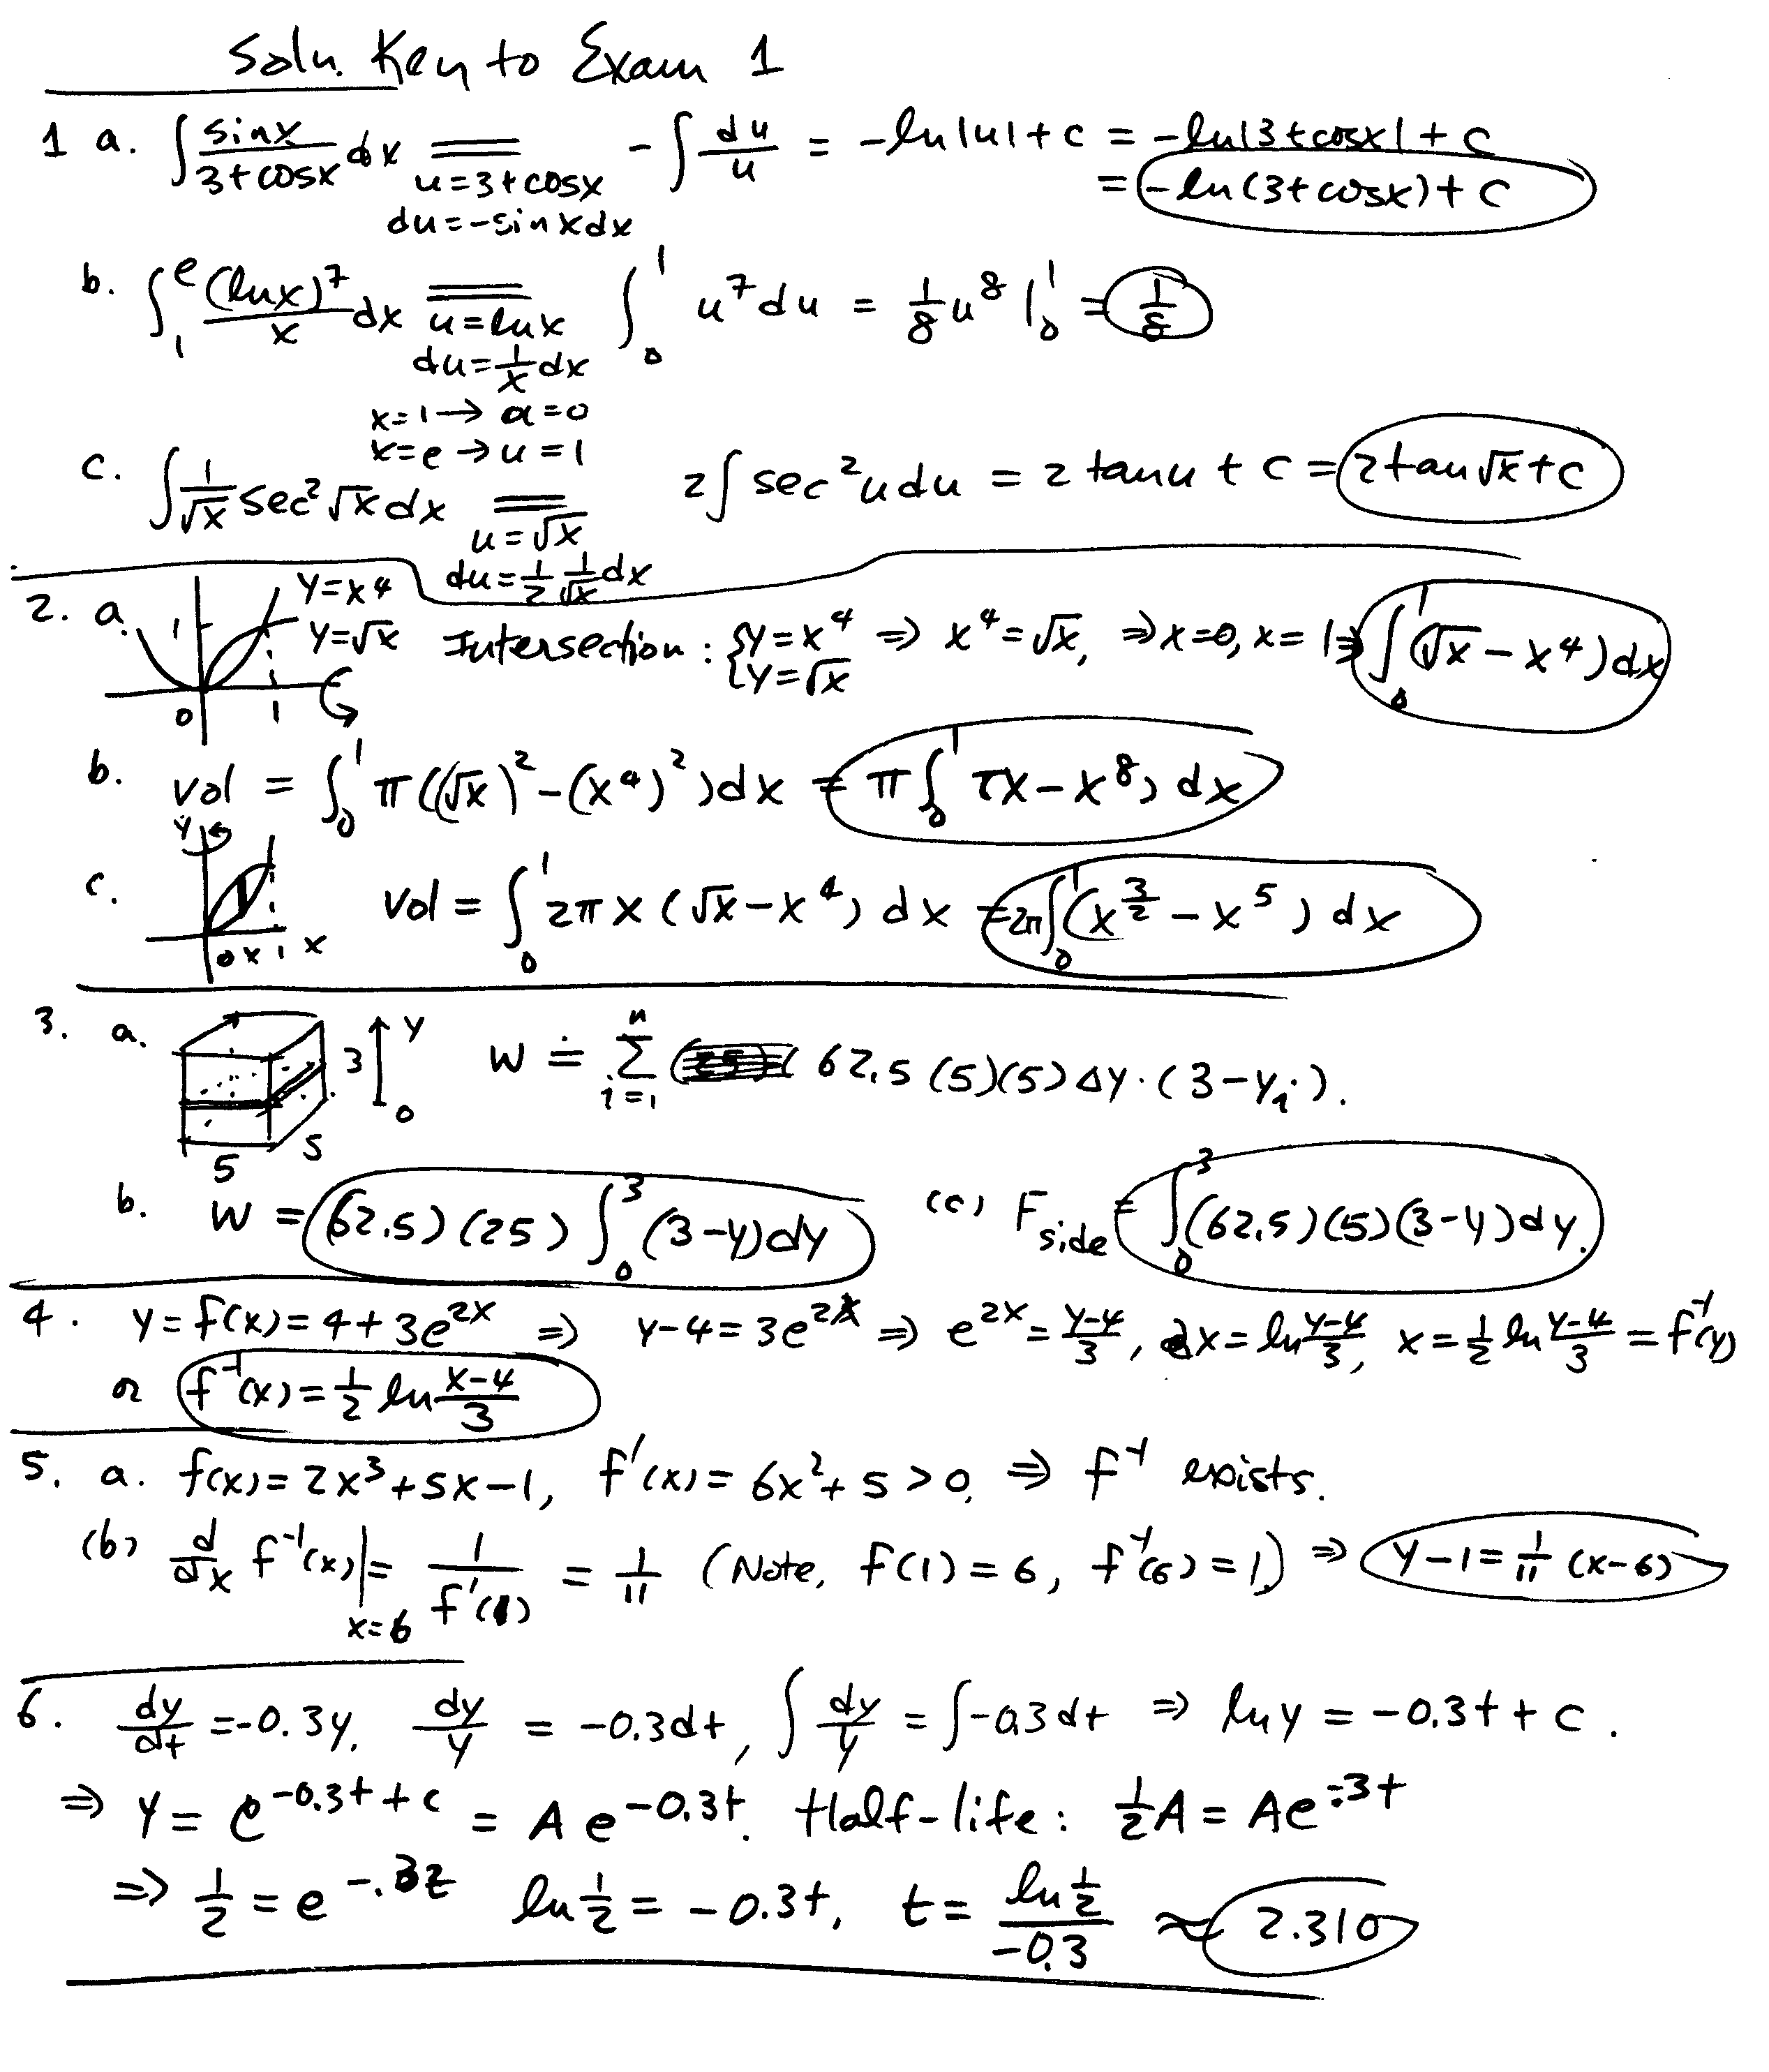 Soln. Key to Exam 1
1 a. ∫ sinx/(3+cosx) dx = - ∫ du/u = -ln|u| + c = -ln|3+cosx| + c
u=3+cosx = -ln(3+cosx)+c
du=-sinxdx
b. ∫_1^e (lnx)^7/x dx = ∫_0^1 u^7 du = 1/8 u^8 |_0^1 = 1/8
u=lnx
du=1/x dx
x=1→ u=0
x=e→u=1
c. ∫ 1/√x sec^2 √x dx = 2∫ sec^2 u du = 2 tan u + c = 2tan√x+c
u=√x
du=1/2 1/√x dx
2. a. 1 y=x^4
y=√x Intersection: {y=x^4 y=√x ⇒ x^4=√x, ⇒x=0, x=1⇒ ∫_0^1 (√x - x^4)dx
0 1
b. vol = ∫_0^1 π((√x)^2-(x^4)^2)dx = π∫_0^1 (x-x^8) dx
y
c. vol = ∫_0^1 2πx(√x-x^4) dx = 2π∫_0^1 (x^(3/2) - x^5) dx
0 x 1 x
3. a. 3 y 0 W ≐ Σ_{i=1}^n ( 62.5 (5)(5)Δy·(3-y_i).
5 5
b. W = (62.5)(25) ∫_0^3 (3-y)dy (c) F_side = ∫_0^3 (62.5)(5)(3-y)dy.
4. y=f(x)=4+3e^{2x} ⇒ y-4=3e^{2x} ⇒ e^{2x}=(y-4)/3, 2x=ln (y-4)/3, x=1/2 ln (y-4)/3 = f^{-1}(y)
or f^{-1}(x)=1/2 ln (x-4)/3
5. a. f(x)=2x^3+5x-1, f'(x)=6x^2+5>0, ⇒ f^{-1} exists.
(b) d/dx f^{-1}(x)|_{x=6} = 1/f'(1) = 1/11 (Note, f(1)=6, f^{-1}(6)=1) ⇒ y-1=1/11 (x-6)
6. dy/dt =-0.3y. dy/y = -0.3dt, ∫ dy/y = ∫-0.3dt ⇒ ln y = -0.3t + c.
⇒ y = e^{-0.3t+c} = A e^{-0.3t}. Half-life: 1/2 A = Ae^{-.3t}
⇒ 1/2 = e^{-.3t} ln 1/2 = -0.3t, t = ln 1/2 / -0.3 ≈ 2.310